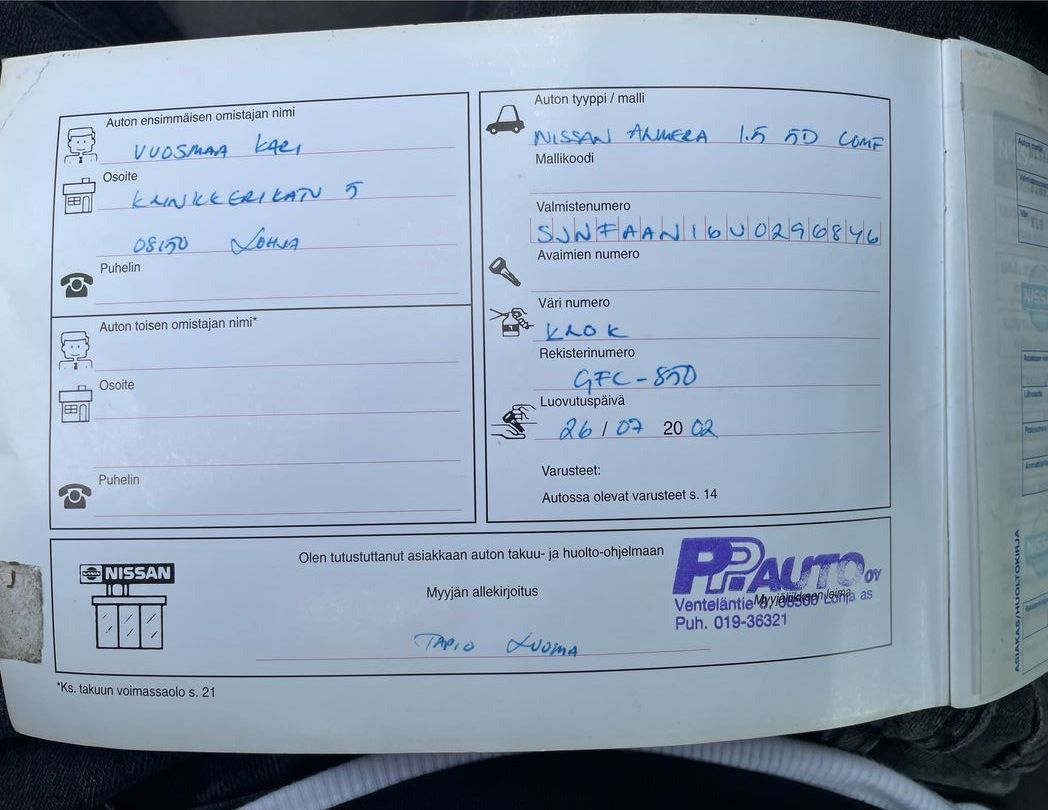 Auton ensimmäisen omistajan nimi
VUOSMAA KARI
Osoite
KLINKKERIKATU 5
08150 LOHJA
Puhelin
Auton toisen omistajan nimi*
Osoite
Puhelin
Auton tyyppi / malli
NISSAN ALMERA 1.5 5D COMF
Mallikoodi
Valmistenumero
SJNFAAN16U0296846
Avaimien numero
Väri numero
KLOK
Rekisterinumero
GFC-850
Luovutuspäivä
26 / 07 20 02
Varusteet:
Autossa olevat varusteet s. 14
Olen tutustuttanut asiakkaan auton takuu- ja huolto-ohjelmaan
NISSAN
Myyjän allekirjoitus
TAPIO LUOMA
PP.AUTO OY
Myyjäliikkeen leima
Venteläntie Lohja as
Puh. 019-36321
*Ks. takuun voimassaolo s. 21
ASIAKAS/HUOLTOKIRJA